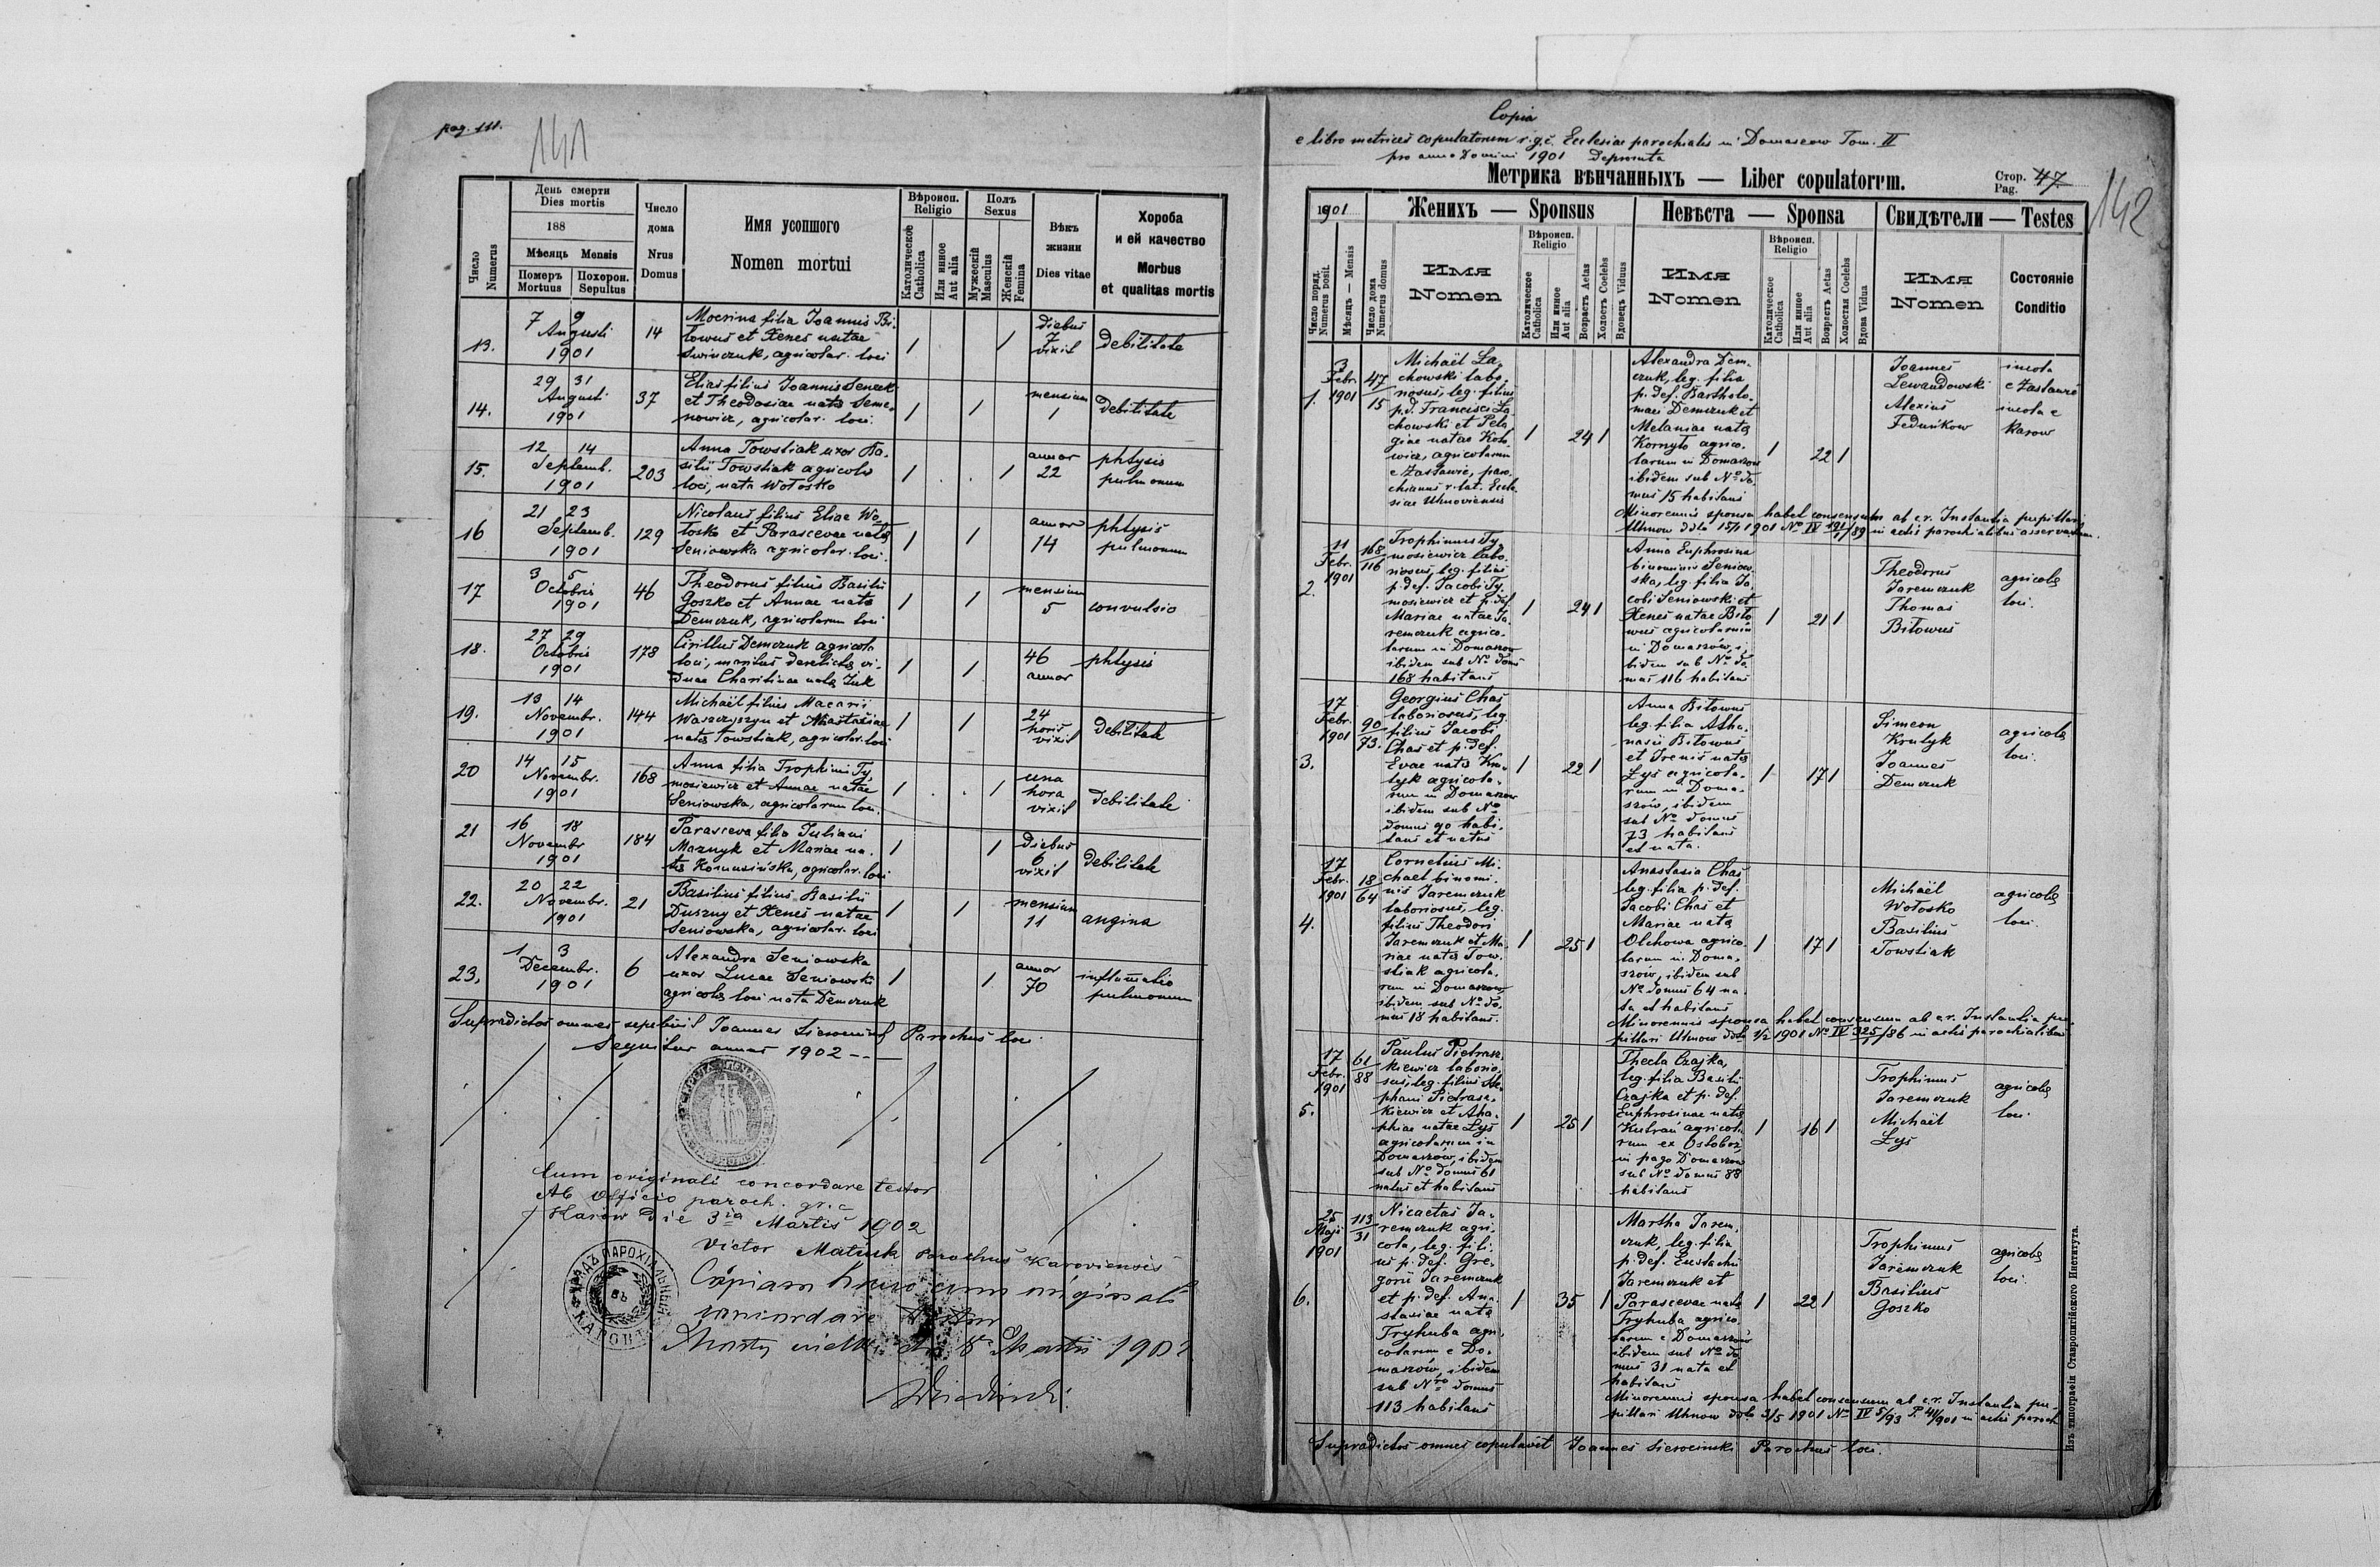 pag. 111.
141
Число Numerus
День смерти
Dies mortis
188
Мѣсяць Mensis
Померъ Mortuus
Похорон. Sepultus
Число дома
Nrus Domus
Имя усопшого
Nomen mortui
Вѣроисп. Religio
Католическое Catholica
Или инное Aut alia
Полъ Sexus
Мужескій Masculus
Женскій Femina
Вѣкъ жизни
Dies vitae
Хороба и ей качество
Morbus et qualitas mortis
13.
7 9
Augusti
1901
14
Mocrina filia Joannis Bi-
towus et Xenes natae
Swinczuk, agricolar. loci
1
1
diebus
7
vixit
debilitate
14.
29 31
Augusti
1901
37
Elias filius Joannis Seneck
et Theodosiae nata Seme-
nowicz, agricolar. loci.
1
1
mensium
1
debilitate
15.
12 14
Septemb.
1901
203
Anna Towstiak uxor Ba-
silii Towstiak agricola
loci, nata Wołosko
1
1
annor
22
phtysis
pulmonum
16
21 23
Septemb.
1901
129
Nicolaus filius Eliae Wo-
łosko et Parascevae nata
Seniowska agricolar. loci.
1
1
annor
14
phtysis
pulmonum
17
3 5
Octobris
1901
46
Theodorus filius Basilii
Goszko et Annae nata
Demczuk, agricolarum loci
1
1
mensium
5
convulsio
18.
27 29
Octobris
1901
178
Cirillus Demczuk agricola
loci, maritus derelicta vi-
duae Charitinae nata Żuk
1
1
46
annor
phtysis
19.
13 14
Novembr.
1901
144
Michaël filius Macarii
Waszczyszyn et Anastasiae
nata Towstiak, agricolar. loci
1
1
24
horis
vixit
debilitate
20
14 15
Novembr.
1901
168
Anna filia Trophimi Ty-
mosiewicz et Annae natae
Seniowska, agricolarum loci.
1
1
una
hora
vixit
debilitate
21
16 18
Novembr
1901
184
Parasceva filia Juliani
Maznyk et Mariae na-
ta Komusińska, agricolar. loci
1
1
diebus
6
vixit
debilitate
22.
20 22
Novembr.
1901
21
Basilius filius Basilii
Duszny et Xenes natae
Seniowska, agricolar. loci
1
1
mensium
11
angina
23.
1 3
Decembr.
1901
6
Alexandra Seniowska
uxor Lucae Seniowski
agricola loci nata Demczuk
1
1
annor
70
inflamatio
pulmonum
Supradictos omnes sepelivit Joannes Sierocinski Parochus loci
Sequitur annus 1902
Cum originali concordare testor
Ab Officio paroch. gr. c
Karów die 3ia Martis 1902
Victor Matiuk parochus Karoviensis
Copiam hanc cum originali
concordare testor
Mosty wielkie die 8 Martii 1902
УРЯДЪ ПАРОХІАЛЬНЫЙ
Copia
e libro metrices copulatorum r. g. c. Ecclesiae parochialis in Domaszow Tom. II
pro anno Domini 1901 Depromta
Метрика вѣнчанныхъ — Liber copulatorum.
Стор. Pag. 47
142
1901
Женихъ — Sponsus
Невѣста — Sponsa
Свидѣтели — Testes
Число поряд. Numerus posit.
Мѣсяц — Mensis
Число дома Numerus domus
Имя Nomen
Вѣроисп. Religio
Католическое Catholica
Или инное Aut alia
Возрастъ Aetas
Холостъ Coelebs
Вдовецъ Viduus
Имя Nomen
Вѣроисп. Religio
Католическое Catholica
Или инное Aut alia
Возрастъ Aetas
Холостая Coelebs
Вдова Vidua
Имя Nomen
Состояніе Conditio
1.
3
Febr.
1901
47
15
Michaël La-
chowski labo-
riosus, leg. filius
p. d. Francisci La-
chowski et Pela-
giae natae Koto-
wicz, agricolarum
e Zastawie, paro-
chianus r. lat. Eccle-
siae Uhnoviensis
1
24 1
Alexandra Dem-
czuk, leg. filia
p. def. Bartholo-
maei Demczuk et
Melaniae nata
Kornyło agrico-
larum in Domaszow
ibidem sub No do-
mus 15 habitans
1
22 1
Joannes
Lewandowski
Alexius
Feduńkow
incola
e Zastawie
incola e
Karow
Minorennis sponsa habet consensum ab c.r. Instantia pupillari
Uhnow ddo 15/1 1901 No IV 191/1/89 in actis parochialibus asservatum.
2.
11
Febr.
1901
168
116
Trophimus Ty-
mosiewicz labo-
riosus, leg. filius
p. def. Jacobi Ty-
mosiewicz et p. def.
Mariae natae Ja-
remczuk agrico-
larum in Domaszow
ibidem sub No domus
168 habitans
1
24 1
Anna Euphrosina
binominis Seniow-
ska, leg. filia Ja-
cobi Seniowski et
Xenes natae Biło-
wus agricolarum
in Domaszów, i-
bidem sub No do-
mus 116 habitans
1
21 1
Theodorus
Jaremczuk
Thomas
Biłowus
agricola
loci.
3.
17
Febr.
1901
90
73.
Georgius Chas
laboriosus, leg.
filius Jacobi
Chas et p. def.
Evae nata Kru-
tyk agricola-
rum in Domaszow
ibidem sub No
domus 90 habi-
tans et natus
1
22 1
Anna Biłowus
leg. filia Atha-
nasii Biłowus
et Irenis nata
Łys agricola-
rum in Doma-
szów, ibidem
sub No domus
73 habitans
et nata.
1
17 1
Simeon
Krutyk
Joannes
Demczuk
agricola
loci.
4.
17
Febr.
1901
18
64
Cornelius Mi-
chael binomi-
nis Jaremczuk
laboriosus, leg.
filius Theodori
Jaremczuk et Ma-
riae nata Tow-
stiak agricola-
rum in Domaszow
ibidem sub No do-
mus 18 habitans.
1
25 1
Anastasia Chas
leg. filia p. def.
Jacobi Chas et
Mariae nata
Olchowa agrico-
larum in Doma-
szów, ibidem sub
No domus 64 na-
ta et habitans
1
17 1
Michaël
Wołosko
Basilius
Towstiak
agricola
loci.
Minorennis sponsa habet consensum ab c.r. Instantia pu-
pillari Uhnow ddo 1/2 1901 No IV 325/1/86 in actis parochialibus
5.
17
Febr.
1901
61
88
Paulus Pietrasz-
kiewicz laborio-
sus, leg. filius Ste-
phani Pietrasz-
kiewicz et Aha-
phiae natae Łys
agricolarum in
Domaszow, ibidem
sub No domus 61
natus et habitans
1
25 1
Thecla Czajka,
leg. filia Basilii
Czajka et p. def.
Euphrosinae nata
Kutrań agricola-
rum ex Ostobuż
in pago Domaszow
sub No domus 88
habitans
1
16 1
Trophimus
Jaremczuk
Michaël
Łys
agricola
loci.
6.
25
Maji
1901
113
31
Nicaetas Ja-
remczuk agri-
cola, leg. fili-
us p. def. Gre-
gorii Jaremczuk
et p. def. Ana-
stasiae nata
Tryhuba agri-
colarum e Do-
maszów, ibidem
sub Nro domus
113 habitans
1
35 1
Martha Jarem-
czuk, leg. filia
p. def. Eustachii
Jaremczuk et
Parascevae nata
Tryhuba agrico-
larum e Domaszów
ibidem sub No do-
mus 31 nata et
habitans
1
22 1
Trophimus
Jaremczuk
Basilius
Goszko
agricola
loci.
Minorennis sponsa habet consensum ab c.r. Instantia pu-
pillari Uhnow ddo 3/5 1901 No IV 5/93 P. 41/901 in actis paroch
Supradictos omnes copulavit Joannes Sierocinski Parochus loci.
Изъ типографіи Ставропигійского Института.